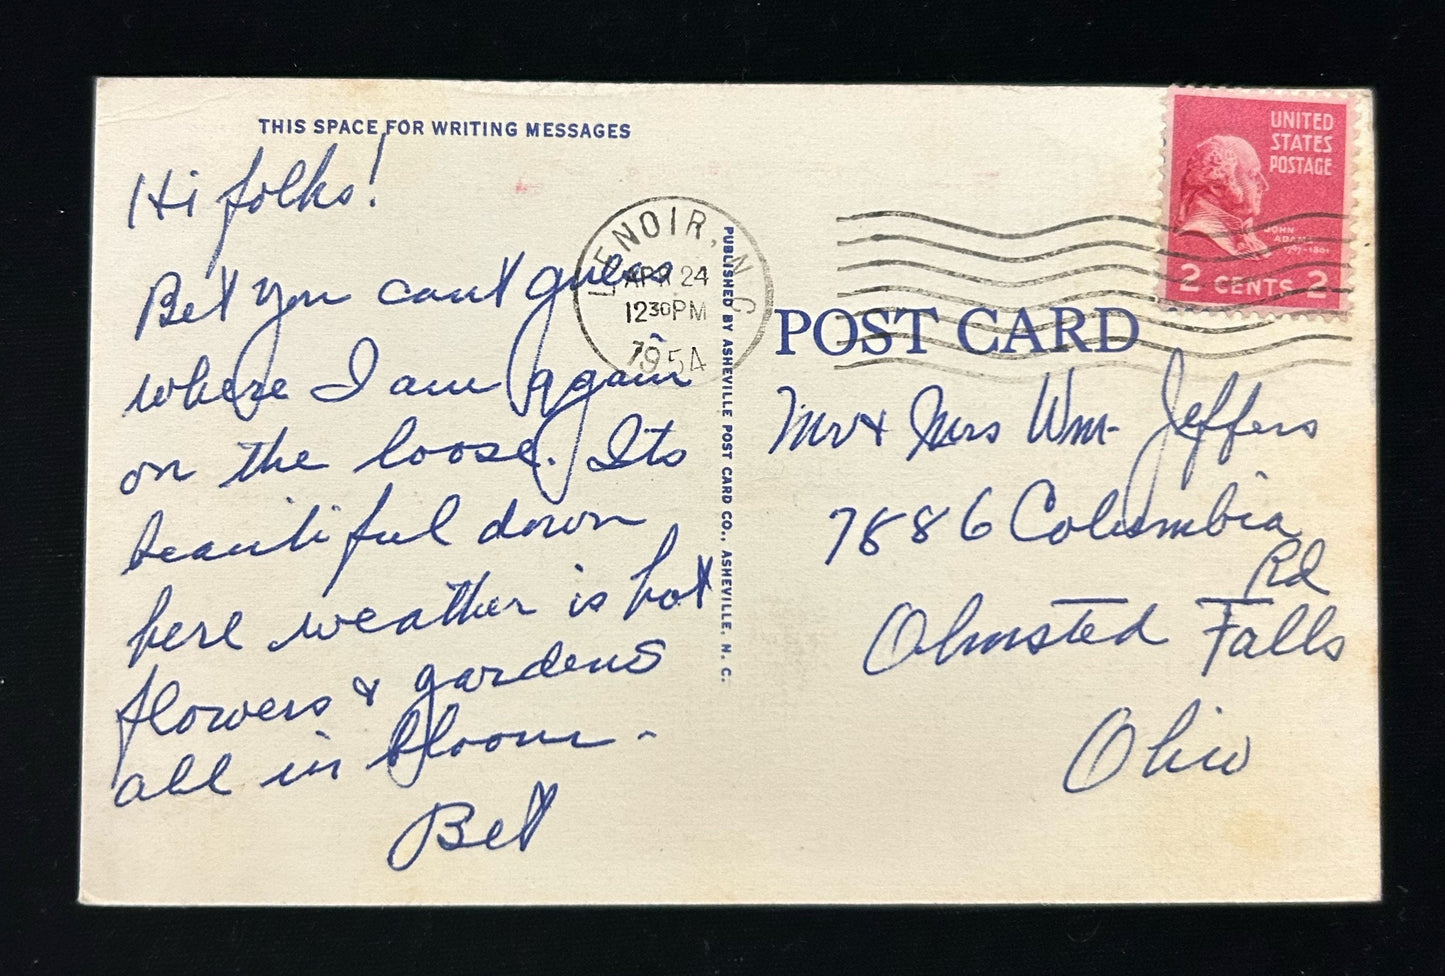 THIS SPACE FOR WRITING MESSAGES
Hi folks!
Bet you cant guess
where I am again
on the loose. Its
beautiful down
here weather is hot
flowers & gardens
all in bloom -
Bet
PUBLISHED BY ASHEVILLE POST CARD CO., ASHEVILLE, N. C.
LENOIR, N.C
APR 24
12 30 PM
1954
UNITED
STATES
POSTAGE
JOHN
ADAMS
1797-1801
2 CENTS 2
POST CARD
Mr & Mrs Wm. Jeffers
7886 Columbia
Rd
Olmsted Falls
Ohio